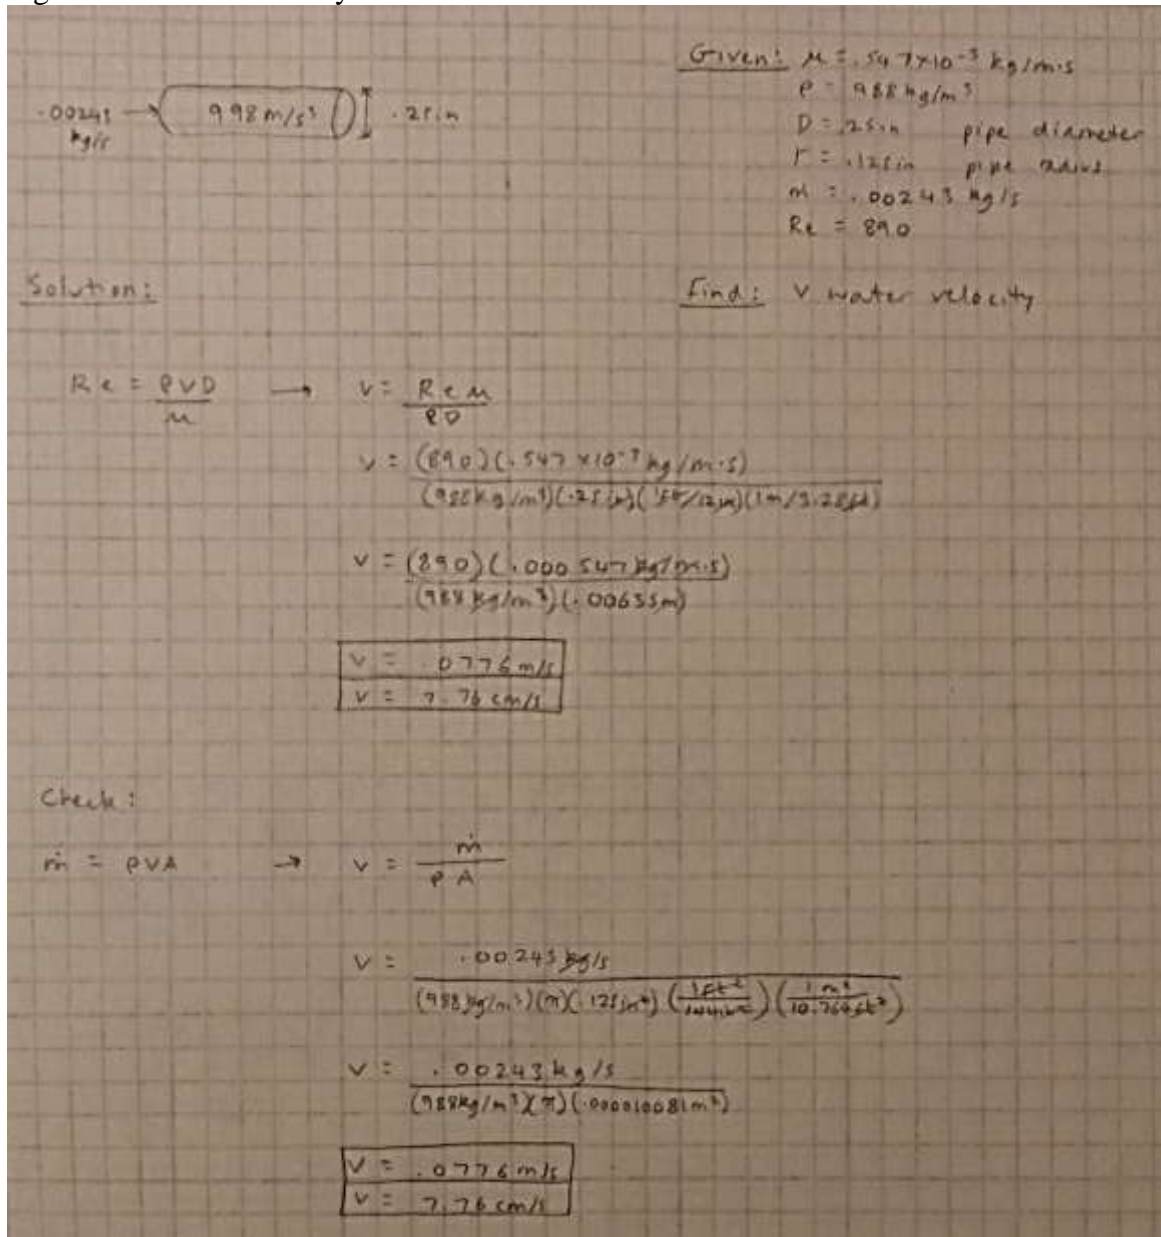 Given: μ = .547x10⁻³ kg/m·s
ρ = 988 kg/m³
.00243 kg/s → 998 m/s³ .25in
D = .25in pipe diameter
r = .125in pipe radius
ṁ = .00243 kg/s
Re = 890
Solution:
Find: v water velocity
Re = ρVD/μ → v = Re μ/ρD
v = (890)(.547 x10⁻³ kg/m·s)/(988 kg/m³)(.25in)(1ft/12in)(1m/3.28ft)
v = (890)(.000547 kg/m·s)/(988 kg/m³)(.00635m)
v = .0776 m/s
v = 7.76 cm/s
Check:
ṁ = ρVA → v = ṁ/ρA
v = .00243 kg/s/(988 kg/m³)(π)(.125in²)(1ft²/144in²)(1m²/10.764ft²)
v = .00243 kg/s/(988kg/m³)(π)(.000010081m²)
v = .0776 m/s
v = 7.76 cm/s